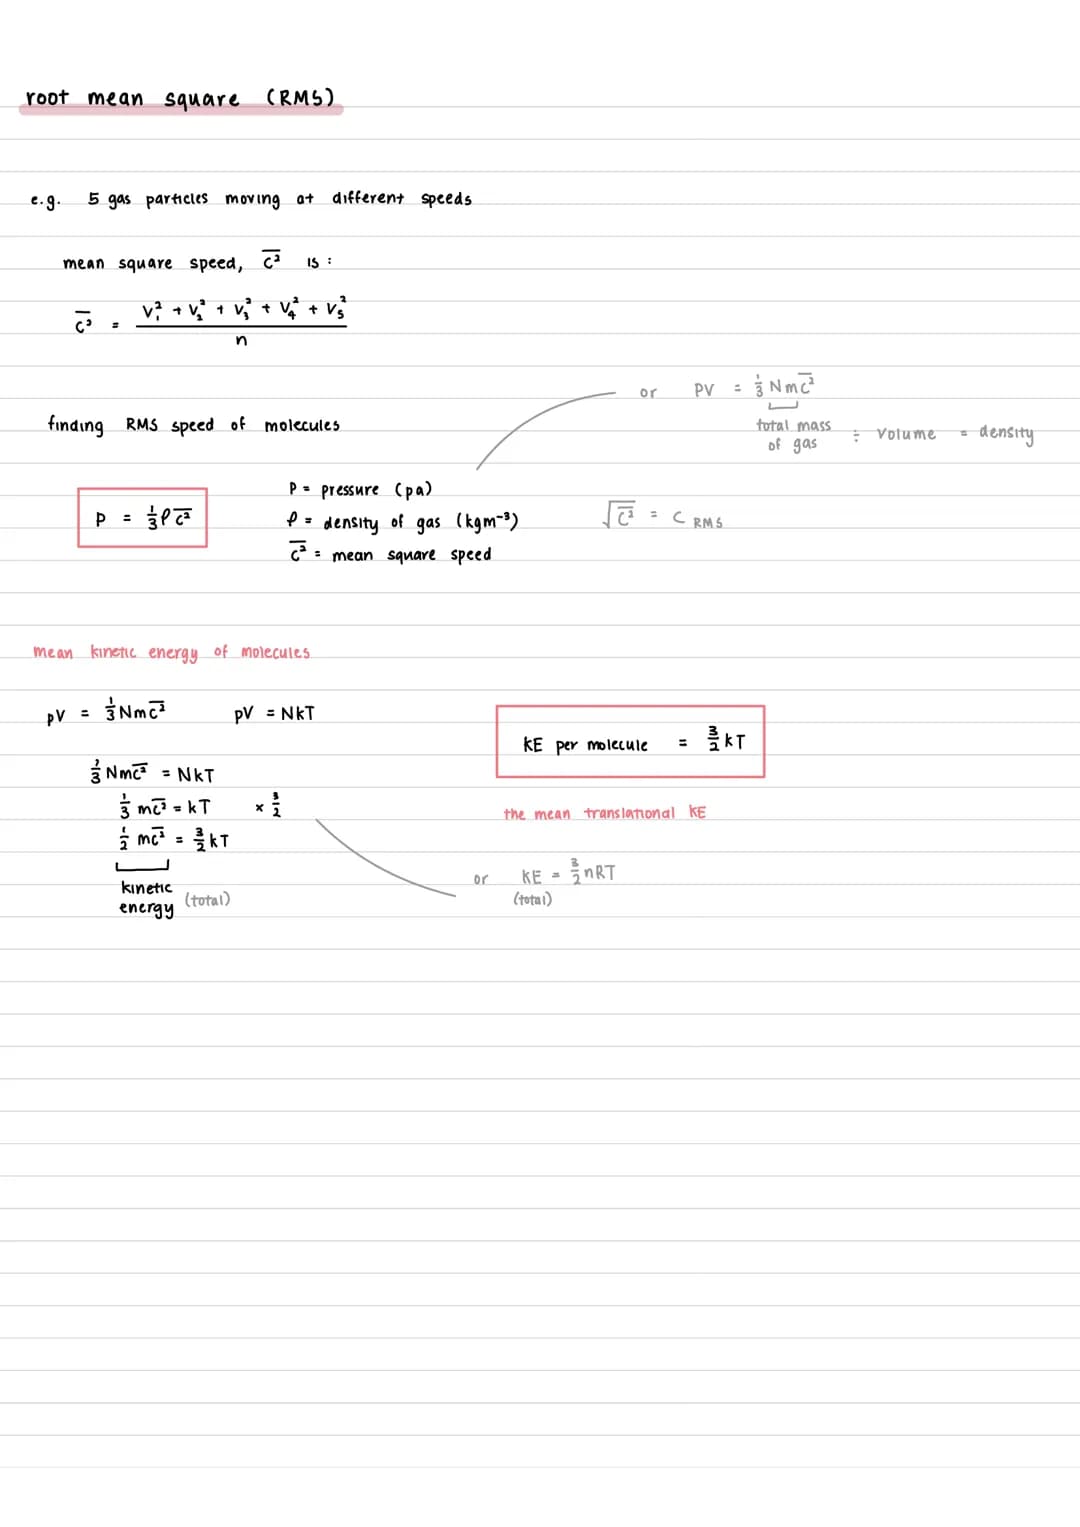 root mean square (RMS)
e.g. 5 gas particles moving at different speeds
mean square speed, c̅² is :
c̅² = (v₁² + v₂² + v₃² + v₄² + v₅²) / n
or pV = ⅓ Nmc̅²
total mass of gas ÷ volume = density
finding RMS speed of molecules
p = ⅓ρc̅²
p = pressure (pa)
ρ = density of gas (kgm⁻³)
c̅² = mean square speed
√c̅² = c RMS
mean kinetic energy of molecules
pV = ⅓Nmc̅² pV = NkT
⅓Nmc̅² = NkT
⅓ mc̅² = kT × 3/2
½ mc̅² = 3/2 kT
kinetic energy (total)
KE per molecule = 3/2 kT
the mean translational KE
or KE = 3/2 nRT
(total)